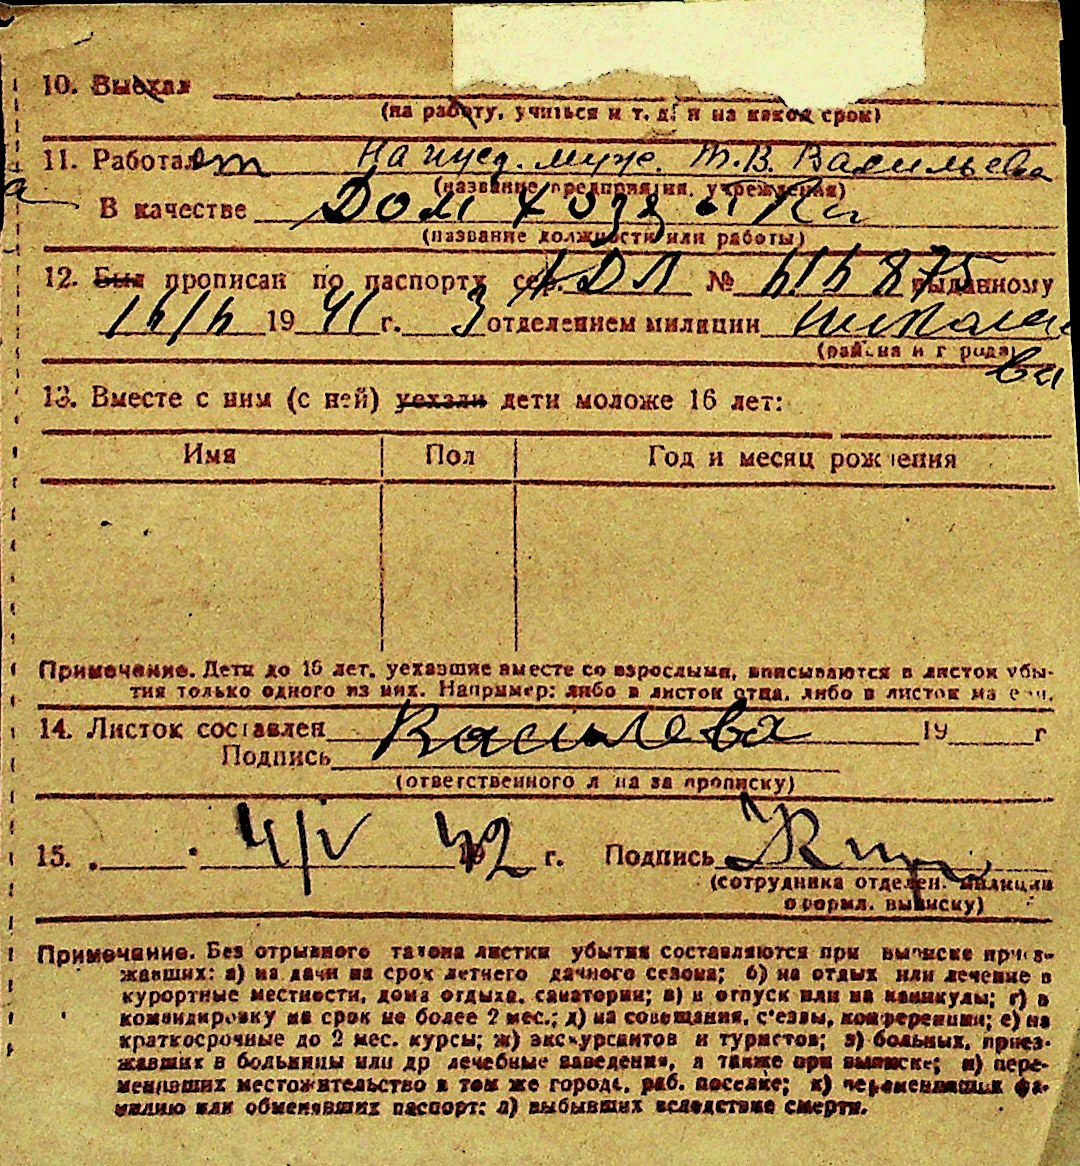 10. Выехал
(на работу, учиться и т. д. и на какой срок)
11. Работает На ижд. муж. Т. В. Васильева
(название предприятия, учреждения)
а
В качестве Дом хозяйка
(название должности или работы)
12. Был прописан по паспорту сер. ДЛ № 616875 выданному
16/6 19 41 г. 3 отделением милиции Николае
(района и города)
ва
13. Вместе с ним (с ней) уехали дети моложе 16 лет:
Имя Пол Год и месяц рождения
Примечание. Дети до 16 лет, уехавшие вместе со взрослыми, вписываются в листок убы-
тия только одного из них. Например: либо в листок отца, либо в листок матери.
14. Листок составлен Васильева 19 г
Подпись
(ответственного лица за прописку)
15. 4/V 1942 г. Подпись
(сотрудника отделен. милиции
оформл. выписку)
Примечание. Без отрывного талона листки убытия составляются при выписке приез-
жавших: а) на дачи на срок летнего дачного сезона; б) на отдых или лечение в
курортные местности, дома отдыха, санатории; в) в отпуск или на каникулы; г) в
командировку на срок не более 2 мес.; д) на совещания, съезды, конференции; е) на
краткосрочные до 2 мес. курсы; ж) экскурсантов и туристов; з) больных, приез-
жавших в больницы или др лечебные заведения, а также при выписке; и) пере-
менивших местожительство в том же городе, раб. поселке; к) переменивших фа-
милию или обменявших паспорт; л) выбывших вследствие смерти.